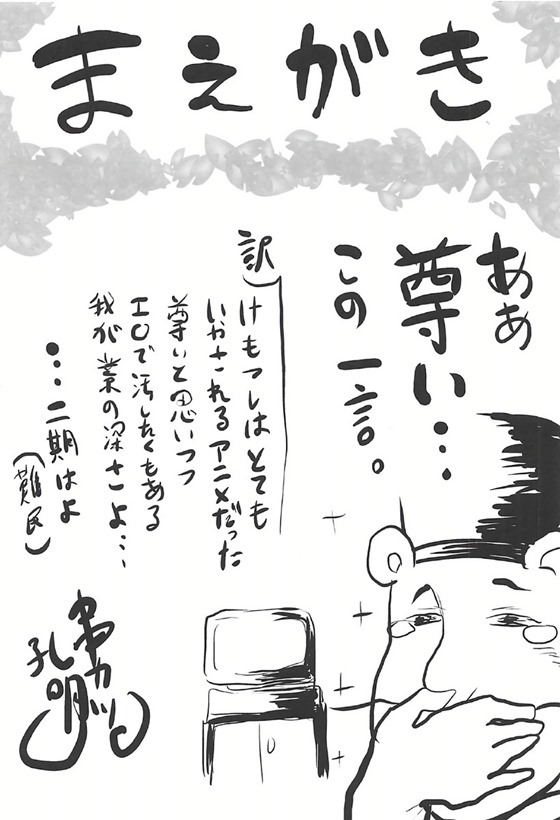 まえがき
ああ
尊い…
この一言。
訳)
けもっしはとても
いやされるアニメだった
尊いと思いつつ
エロで汚したくもある
我が業の深さよ…
…二期はよ
(難民)
串カツ
孔明